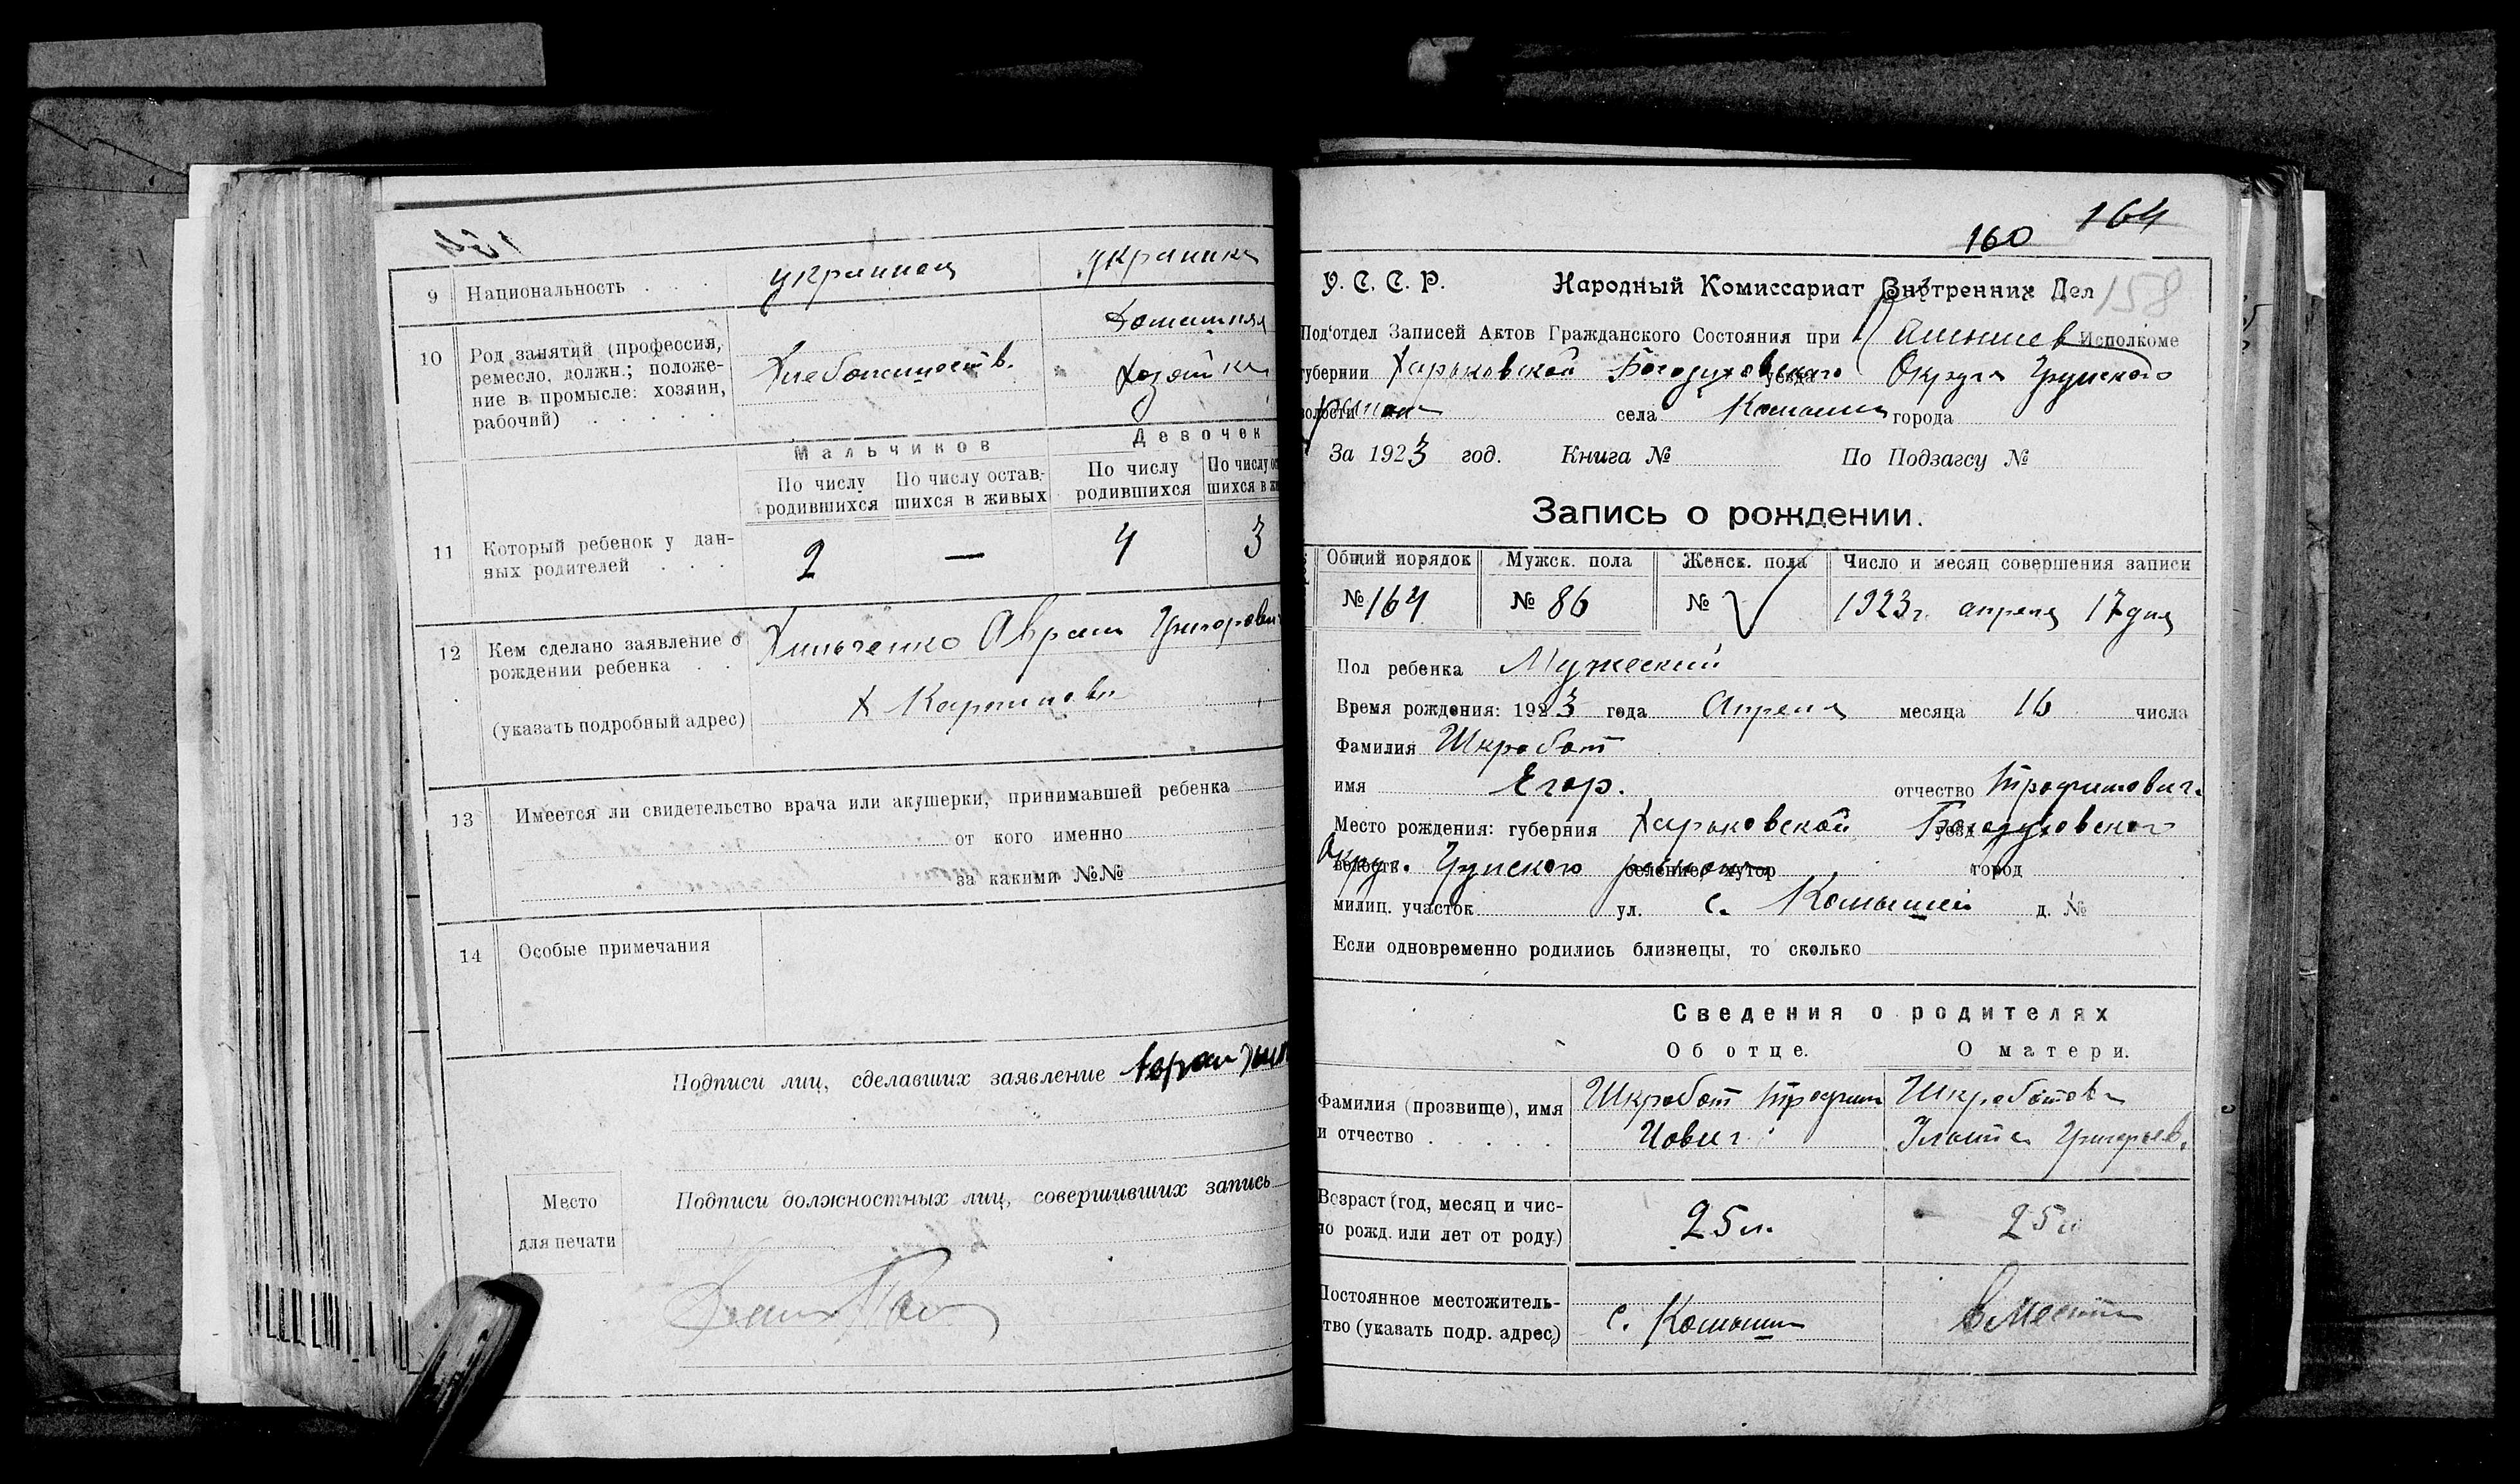 9 Национальность украинец украинка
10 Род занятий (профессия,
ремесло, должн.; положе-
ние в промысле: хозяин,
рабочий)
Хлебопашеств.
Домашняя
хозяйка
Мальчиков Девочек
По числу
родившихся
По числу остав-
шихся в живых
По числу
родившихся
По числу ос
шихся в жи
11 Который ребенок у дан-
ных родителей 2 — 4 3
12 Кем сделано заявление о
рождении ребенка
Хильченко Аврам Григорович
(указать подробный адрес)
13 Имеется ли свидетельство врача или акушерки, принимавшей ребенка
от кого именно
за какими №№
14 Особые примечания
Подписи лиц, сделавших заявление
Место
для печати
Подписи должностных лиц, совершивших запись
160 164
158
У. С. С. Р. Народный Комиссариат Внутренних Дел
Под'отдел Записей Актов Гражданского Состояния при Исполкоме
губернии Харьковской Богодуховского уезда Округа Грунского
волости района села Комыши города
За 1923 год. Книга № По Подзагсу №
Запись о рождении.
Общий порядок Мужск. пола Женск. пола Число и месяц совершения записи
№ 164 № 86 № 1923 г. апреля 17 дня
Пол ребенка Мужеский
Время рождения: 1923 года Апреля месяца 16 числа
Фамилия Шкробот
имя Егор. отчество Трофимович.
Место рождения: губерния Харьковской уезд Богодуховского
Округ. волость Грунского района селение, хутор город
милиц. участок ул. с. Комышей д. №
Если одновременно родились близнецы, то сколько
Сведения о родителях
Об отце. О матери.
Фамилия (прозвище), имя
и отчество
Шкробот Трофим
Иович
Шкроботова
Григорьев.
Возраст (год, месяц и чис-
ло рожд. или лет от роду)
25 л. 25 л
Постоянное местожитель-
тво (указать подр. адрес)
с. Комыши вместе